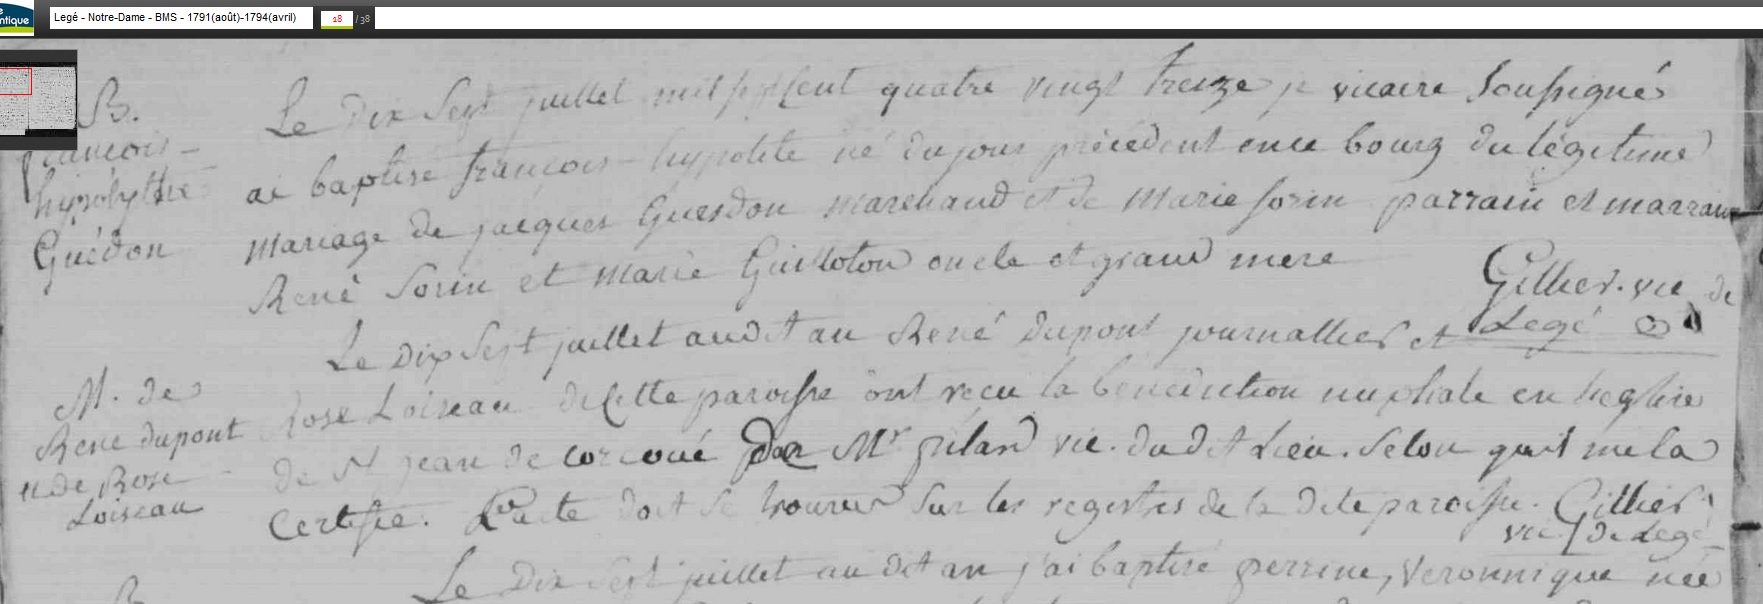 Legé - Notre-Dame - BMS - 1791(août)-1794(avril) 18 / 38
B.
françois -
hypolythe
Guédon
Le dix Sept juillet mil sept Cent quatre vingt treize je vicaire Soussigné
ai baptisé françois - hypolite né du jour précédent en ce bourg du légitime
mariage de jacques Guesdon marchand et de Marie Sorin parrain et marraine
René Sorin et Marie Guilloton oncle et grand mere
Gillier. vic de
Legé
Le dix Sept juillet audit an René dupont journallier et
M. de
René dupont
et de Rose
Loiseau
Rose Loiseau de Cette paroisse ont recu la bénédiction nuptiale en l'eglise
de St jean de corcoué par Mr vic. du dit Lieu. Selon qu'il me la
Certifie. L'acte doit Se trouver Sur les registres de la dite paroisse. Gillier
vic de Legé
Le Dix Sept juillet au dit an j'ai baptisé perrine, Veronnique née
B